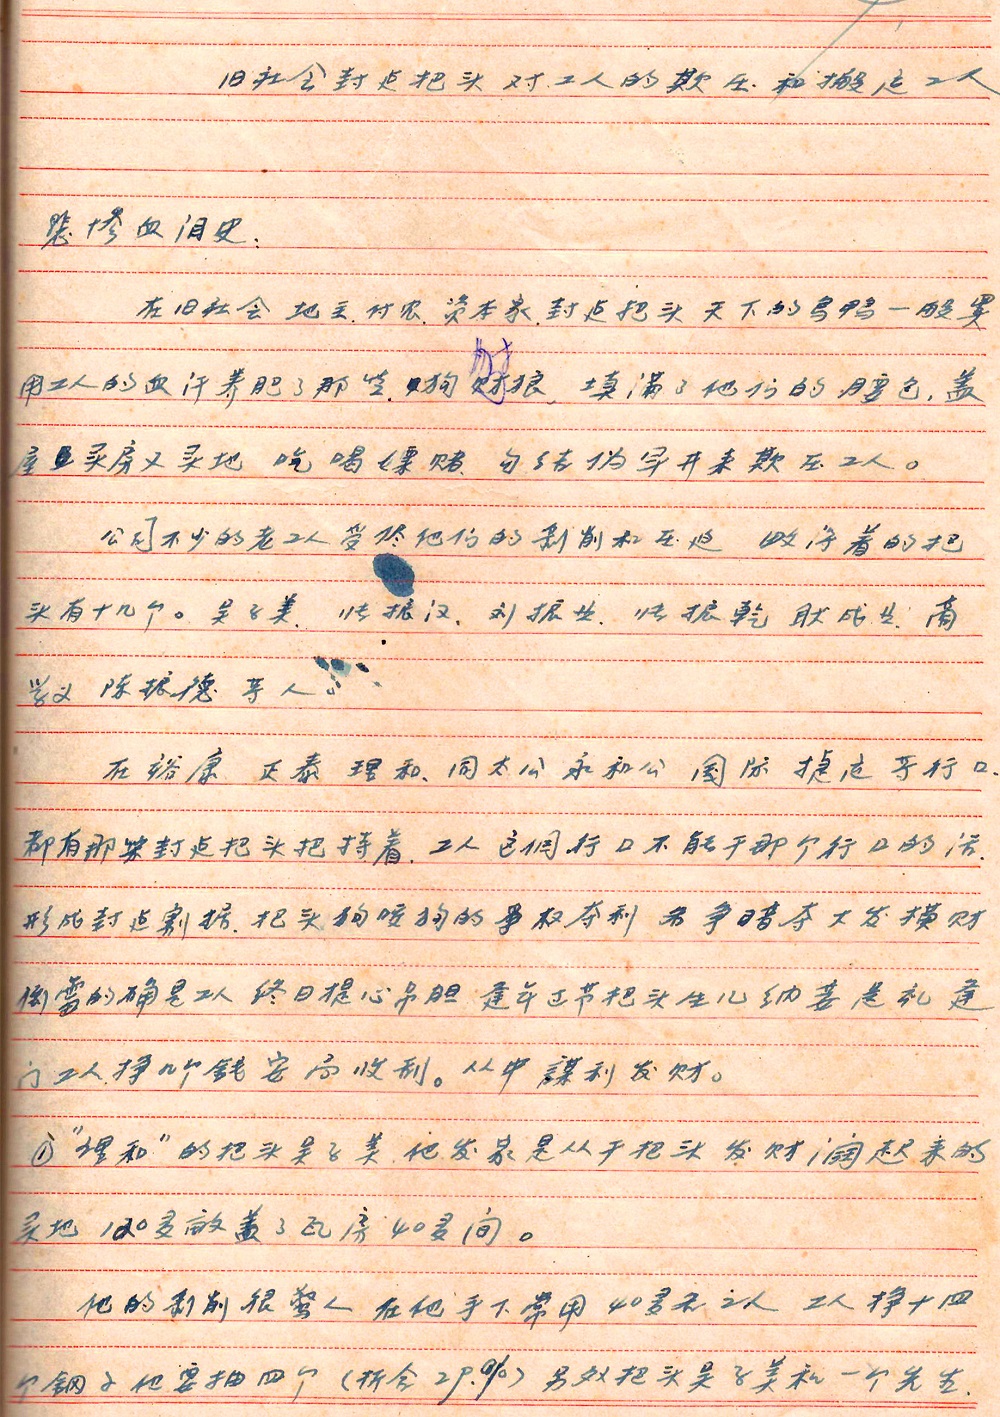 旧社会封建把头对工人的欺压和搬运工人
悲惨血泪史.
在旧社会 地主.付农.资本家.封建把头 天下的乌鸦一般黑
用工人的血汗养肥了那些 狗 豺狼、填满了他们的腰包,盖
屋 买房又买地 吃喝嫖赌 勾结伪军开来欺压工人。
公司不少的老工人受尽他们的剥削和压迫 的把
头有十几个。吴子美.张振汉.刘振生.张振乾 耿成生.商
学义 陈振德等人。
在裕康 天泰 理和.同太公 永和公 国际 捷运等行口.
都有那些封建把头把持着.工人这个行口不能干那个行口的活.
形成封建割据.把头狗咬狗的争权夺利 名争暗夺大发横财
倒霉的确是工人 终日提心吊胆 逢年过节把头生儿纳妾送礼逢
门工人挣几个钱 收刮。从中謀利发财。
①“理和”的把头吴子美 他发家是从干把头发财阔起来的
买地120多畝盖了瓦房40多间。
他的剥削很驚人 在他手下常用40多名工人 工人挣十四
个铜子他要抽四个(折合29.%)另外把头吴子美和一个先生.